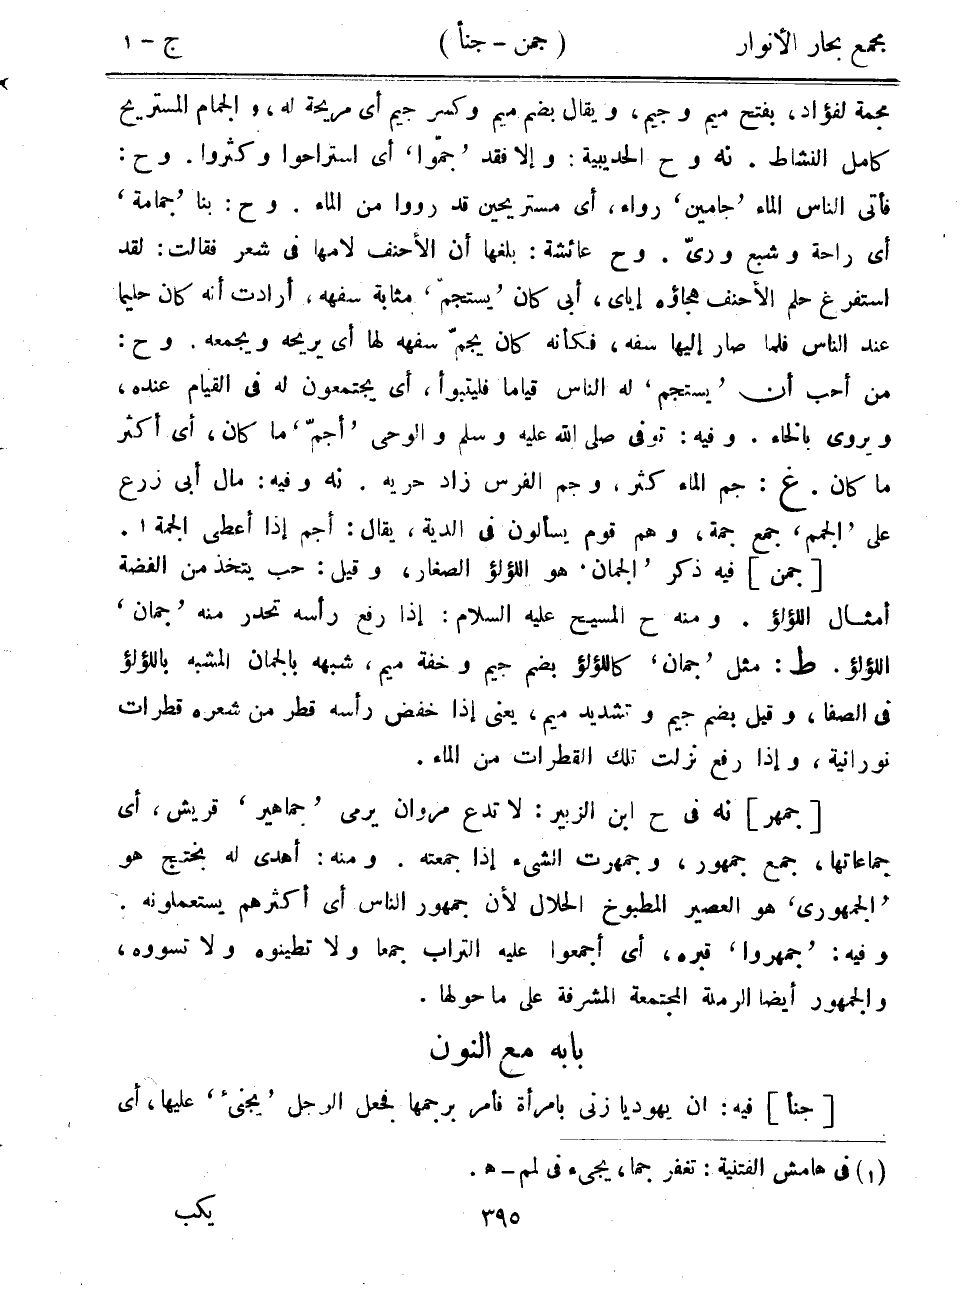 مجمع بحار الأنوار ( جمن - جنأ ) ج - ١
مجمة لفؤاد، بفتح ميم و جيم، و يقال بضم ميم و كسر جيم أى مريحة له، و الجمام المستريح
كامل النشاط . نه و ح الحديبية : و إلا فقد ’جمّوا‘ أى استراحوا و كثروا . و ح :
فأتى الناس الماء ’جامين‘ رواء، أى مستريحين قد رووا من الماء . و ح : بنا ’جمامة‘
أى راحة و شبع و رىّ . و ح عائشة : بلغها أن الأحنف لامها فى شعر فقالت : لقد
استفرغ حلم الأحنف هجاؤه إياى، أبى كان ’يستجمّ‘ مثابة سفهه، أرادت أنه كان حليما
عند الناس فلما صار إليها سفه، فكأنه كان يجمّ سفهه لها أى يريحه و يجمعه . و ح :
من أحب أن ’يستجم‘ له الناس قياما فليتبوأ، أى يجتمعون له فى القيام عنده،
و يروى بالخاء . و فيه : توفى صلى الله عليه و سلم و الوحى ’أجمّ‘ ما كان، أى أكثر
ما كان . غ : جم الماء كثر، و جم الفرس زاد جريه . نه و فيه : مال أبى زرع
على ’الجمم‘ جمع جمة، و هم قوم يسألون فى الدية، يقال : أجم إذا أعطى الجمة ١ .
[ جمن ] فيه ذكر ’الجمان‘ هو اللؤلؤ الصغار، و قيل : حب يتخذ من الفضة
أمثال اللؤلؤ . و منه ح المسيح عليه السلام : إذا رفع رأسه تحدر منه ’جمان‘
اللؤلؤ . ط : مثل ’جمان‘ كاللؤلؤ بضم جيم و خفة ميم، شبهه بالجمان المشبه باللؤلؤ
فى الصفا، و قيل بضم جيم و تشديد ميم، يعنى إذا خفض رأسه قطر من شعره قطرات
نورانية، و إذا رفع نزلت تلك القطرات من الماء .
[ جمهر ] نه فى ح ابن الزبير : لا تدع مروان يرمى ’جماهير‘ قريش، أى
جماعاتها، جمع جمهور، و جمهرت الشىء إذا جمعته . و منه : أهدى له بختج هو
’الجمهورى‘ هو العصير المطبوخ الحلال لأن جمهور الناس أى أكثرهم يستعملونه .
و فيه : ’جمهروا‘ قبره، أى أجمعوا عليه التراب جمعا و لا تطينوه و لا تسووه،
و الجمهور أيضا الرملة المجتمعة المشرفة على ما حولها .
بابه مع النون
[ جنأ ] فيه : ان يهوديا زنى بامرأة فأمر برجمها فجعل الرجل ’يجنىٔ‘ عليها، أى
(١) فى هامش الفتنية : تغفر جما، يجىء فى لم - ه .
٣٩٥ يكب